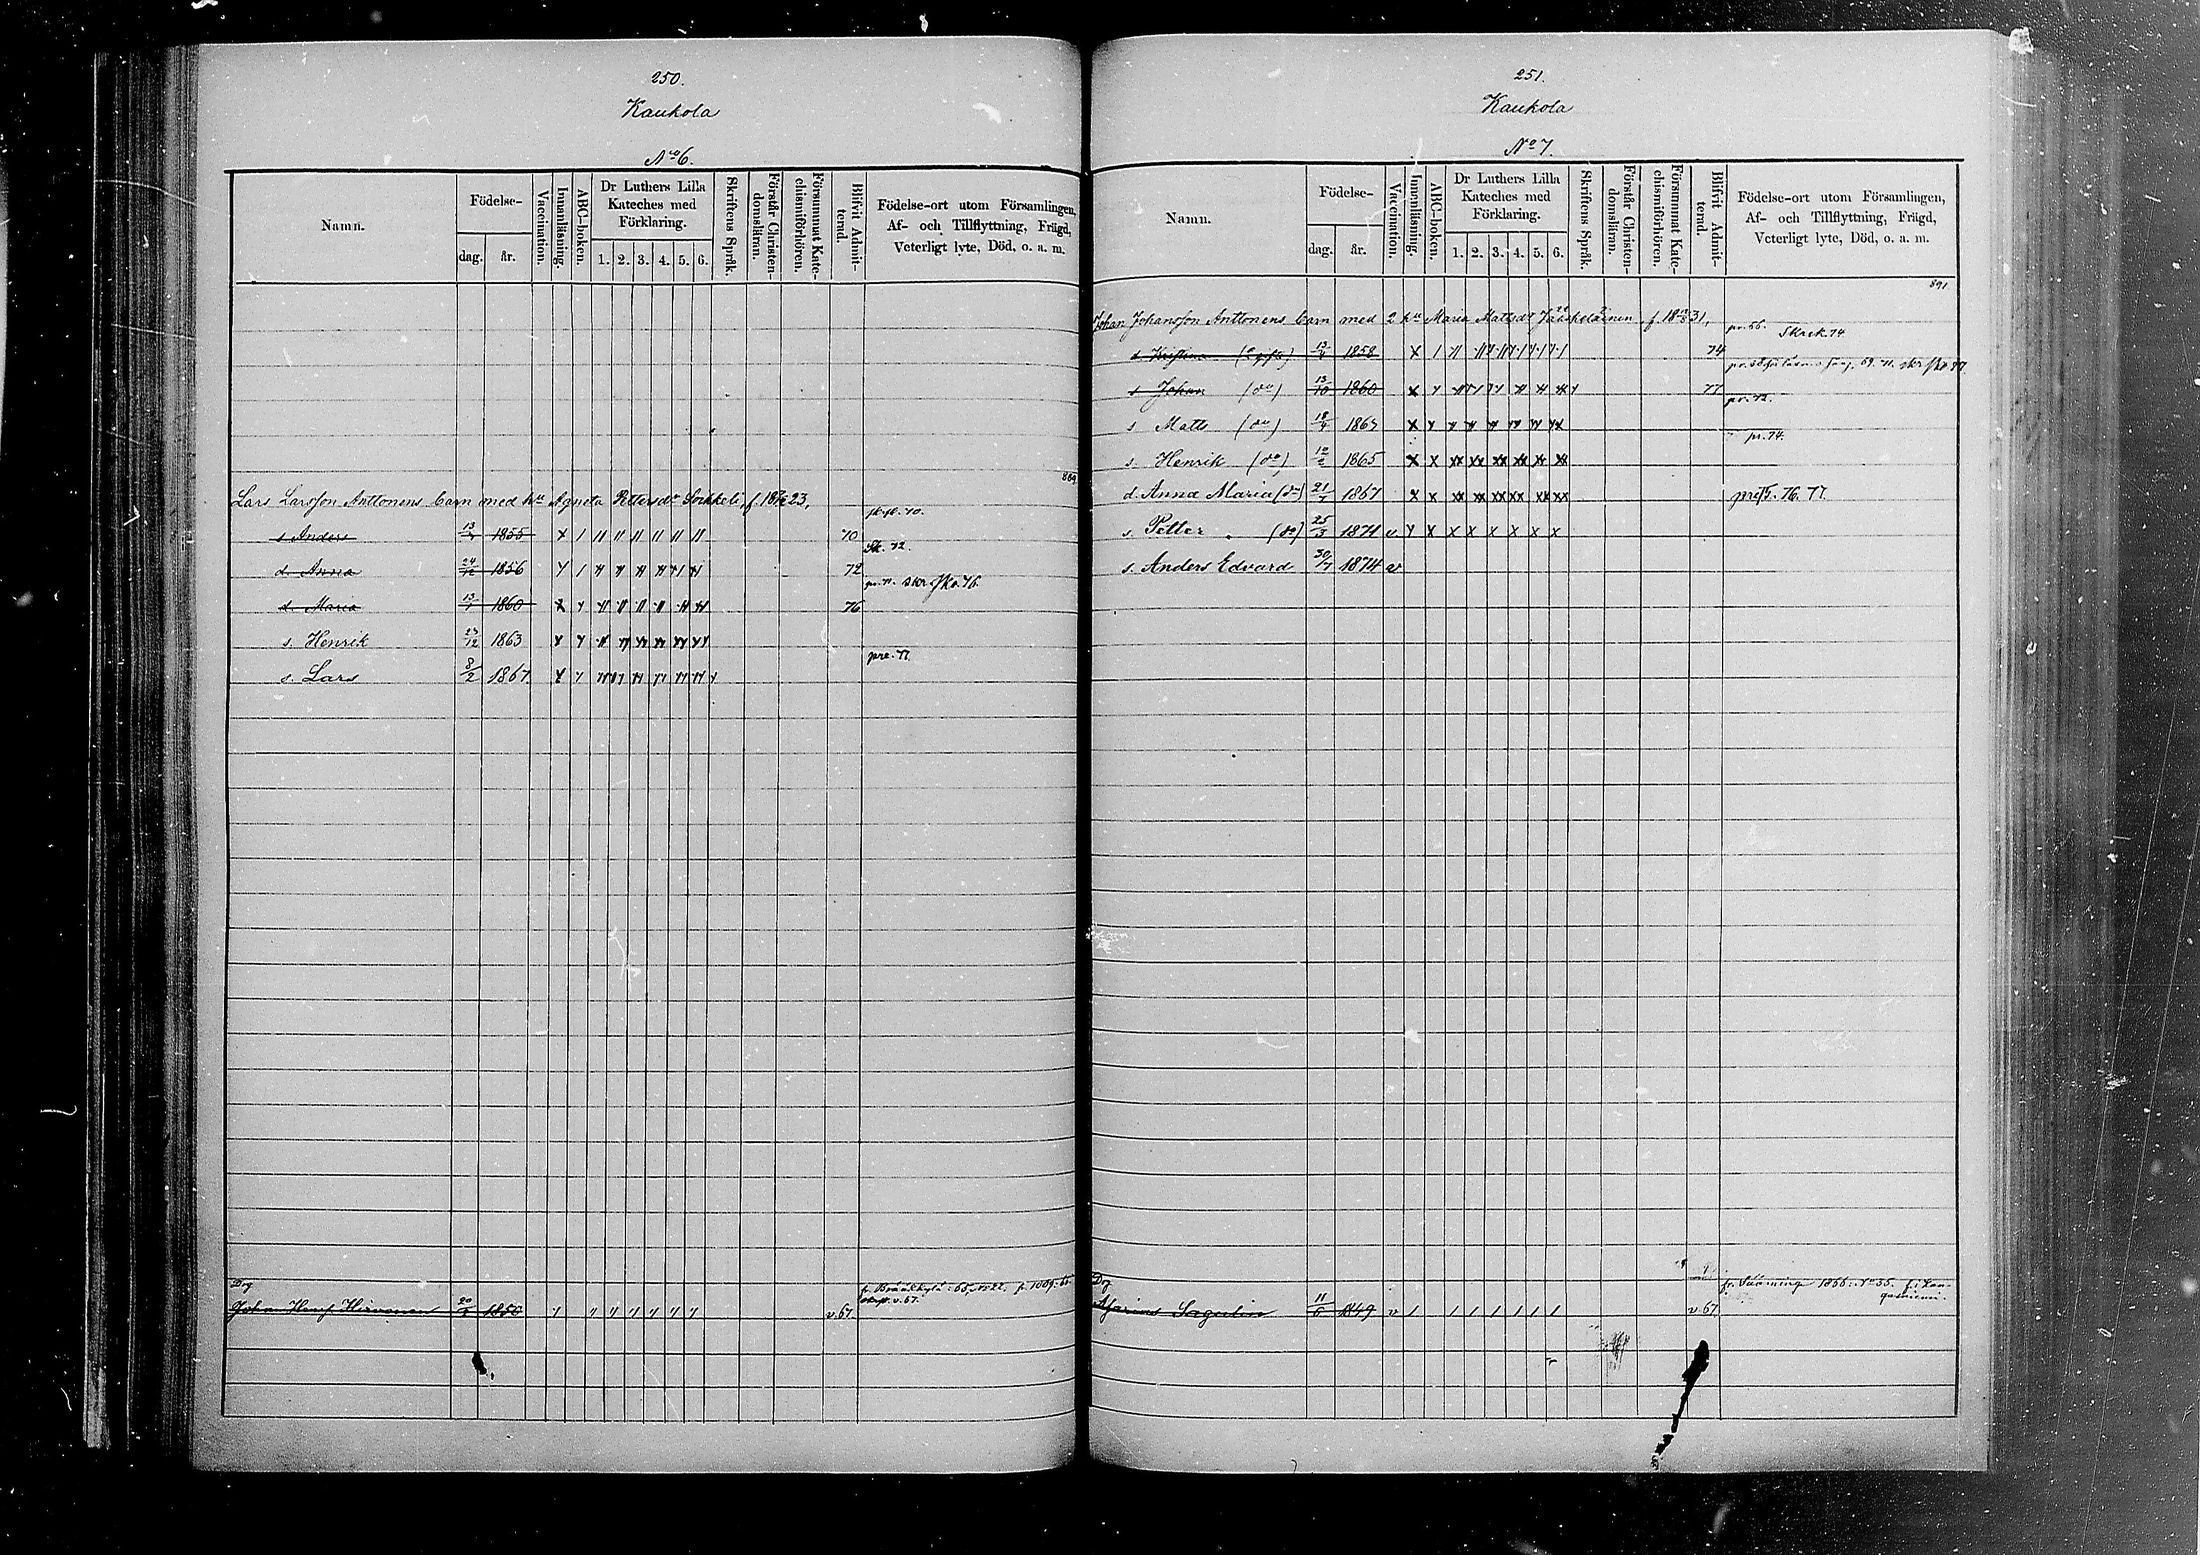 250.
Kaukola
No 6.
Namn.
Födelse-
dag.
år.
Vaccination.
Innanläsning.
ABC-boken.
Dr Luthers Lilla
Kateches med
Förklaring.
1. 2. 3. 4. 5. 6.
Skriftens Språk.
Förstår Christen-
domsläran.
Försummat Kate-
chismiförhören.
Blifvit Admit-
terad.
Födelse-ort utom Församlingen,
Af- och Tillflyttning, Frägd,
Veterligt lyte, Död, o. a. m.
889
Lars Larsson Anttonens barn med hu Agneta Petersdr Sorkkeli, f. 23,
s Anders 13 1855 70
d. Anna 24/12 1856 72 72.
d. Maria 13 1860 76 skr. sko. 76.
s. Henrik 27/12 1863
s. Lars 8/2 1867 pre. 77.
Drg fr. Brääkkylä: 65, No 22, 1009: 65
Johan Henr. Hirvonen 20 1850 v. 67.
251.
Kaukola
No 7.
Namn.
Födelse-
dag.
år.
Vaccination.
Innanläsning.
ABC-boken.
Dr Luthers Lilla
Kateches med
Förklaring.
1. 2. 3. 4. 5. 6.
Skriftens Språk.
Förstår Christen-
domsläran.
Försummat Kate-
chismiförhören.
Blifvit Admit-
terad.
Födelse-ort utom Församlingen,
Af- och Tillflyttning, Frägd,
Veterligt lyte, Död, o. a. m.
891
Johan Johansson Anttonens barn med 2 hu Maria Mattsdr Jääskeläinen, f. 31,
d Kristina 1858 74 pr. 66. 74
s Johan (do) 13/10 1860 77 69. 71. 77
s Matts (do) 18 1863 pr. 72.
s. Henrik (do) 12/2 1865 pr. 74.
d. Anna Maria (do) 21 1867 76. 77.
s. Petter (do) 25/3 1871 v
s. Anders Edvard 30/7 1874 v
Drg fr. 1866: No 35.
Sagulin 11 1849 v v. 67